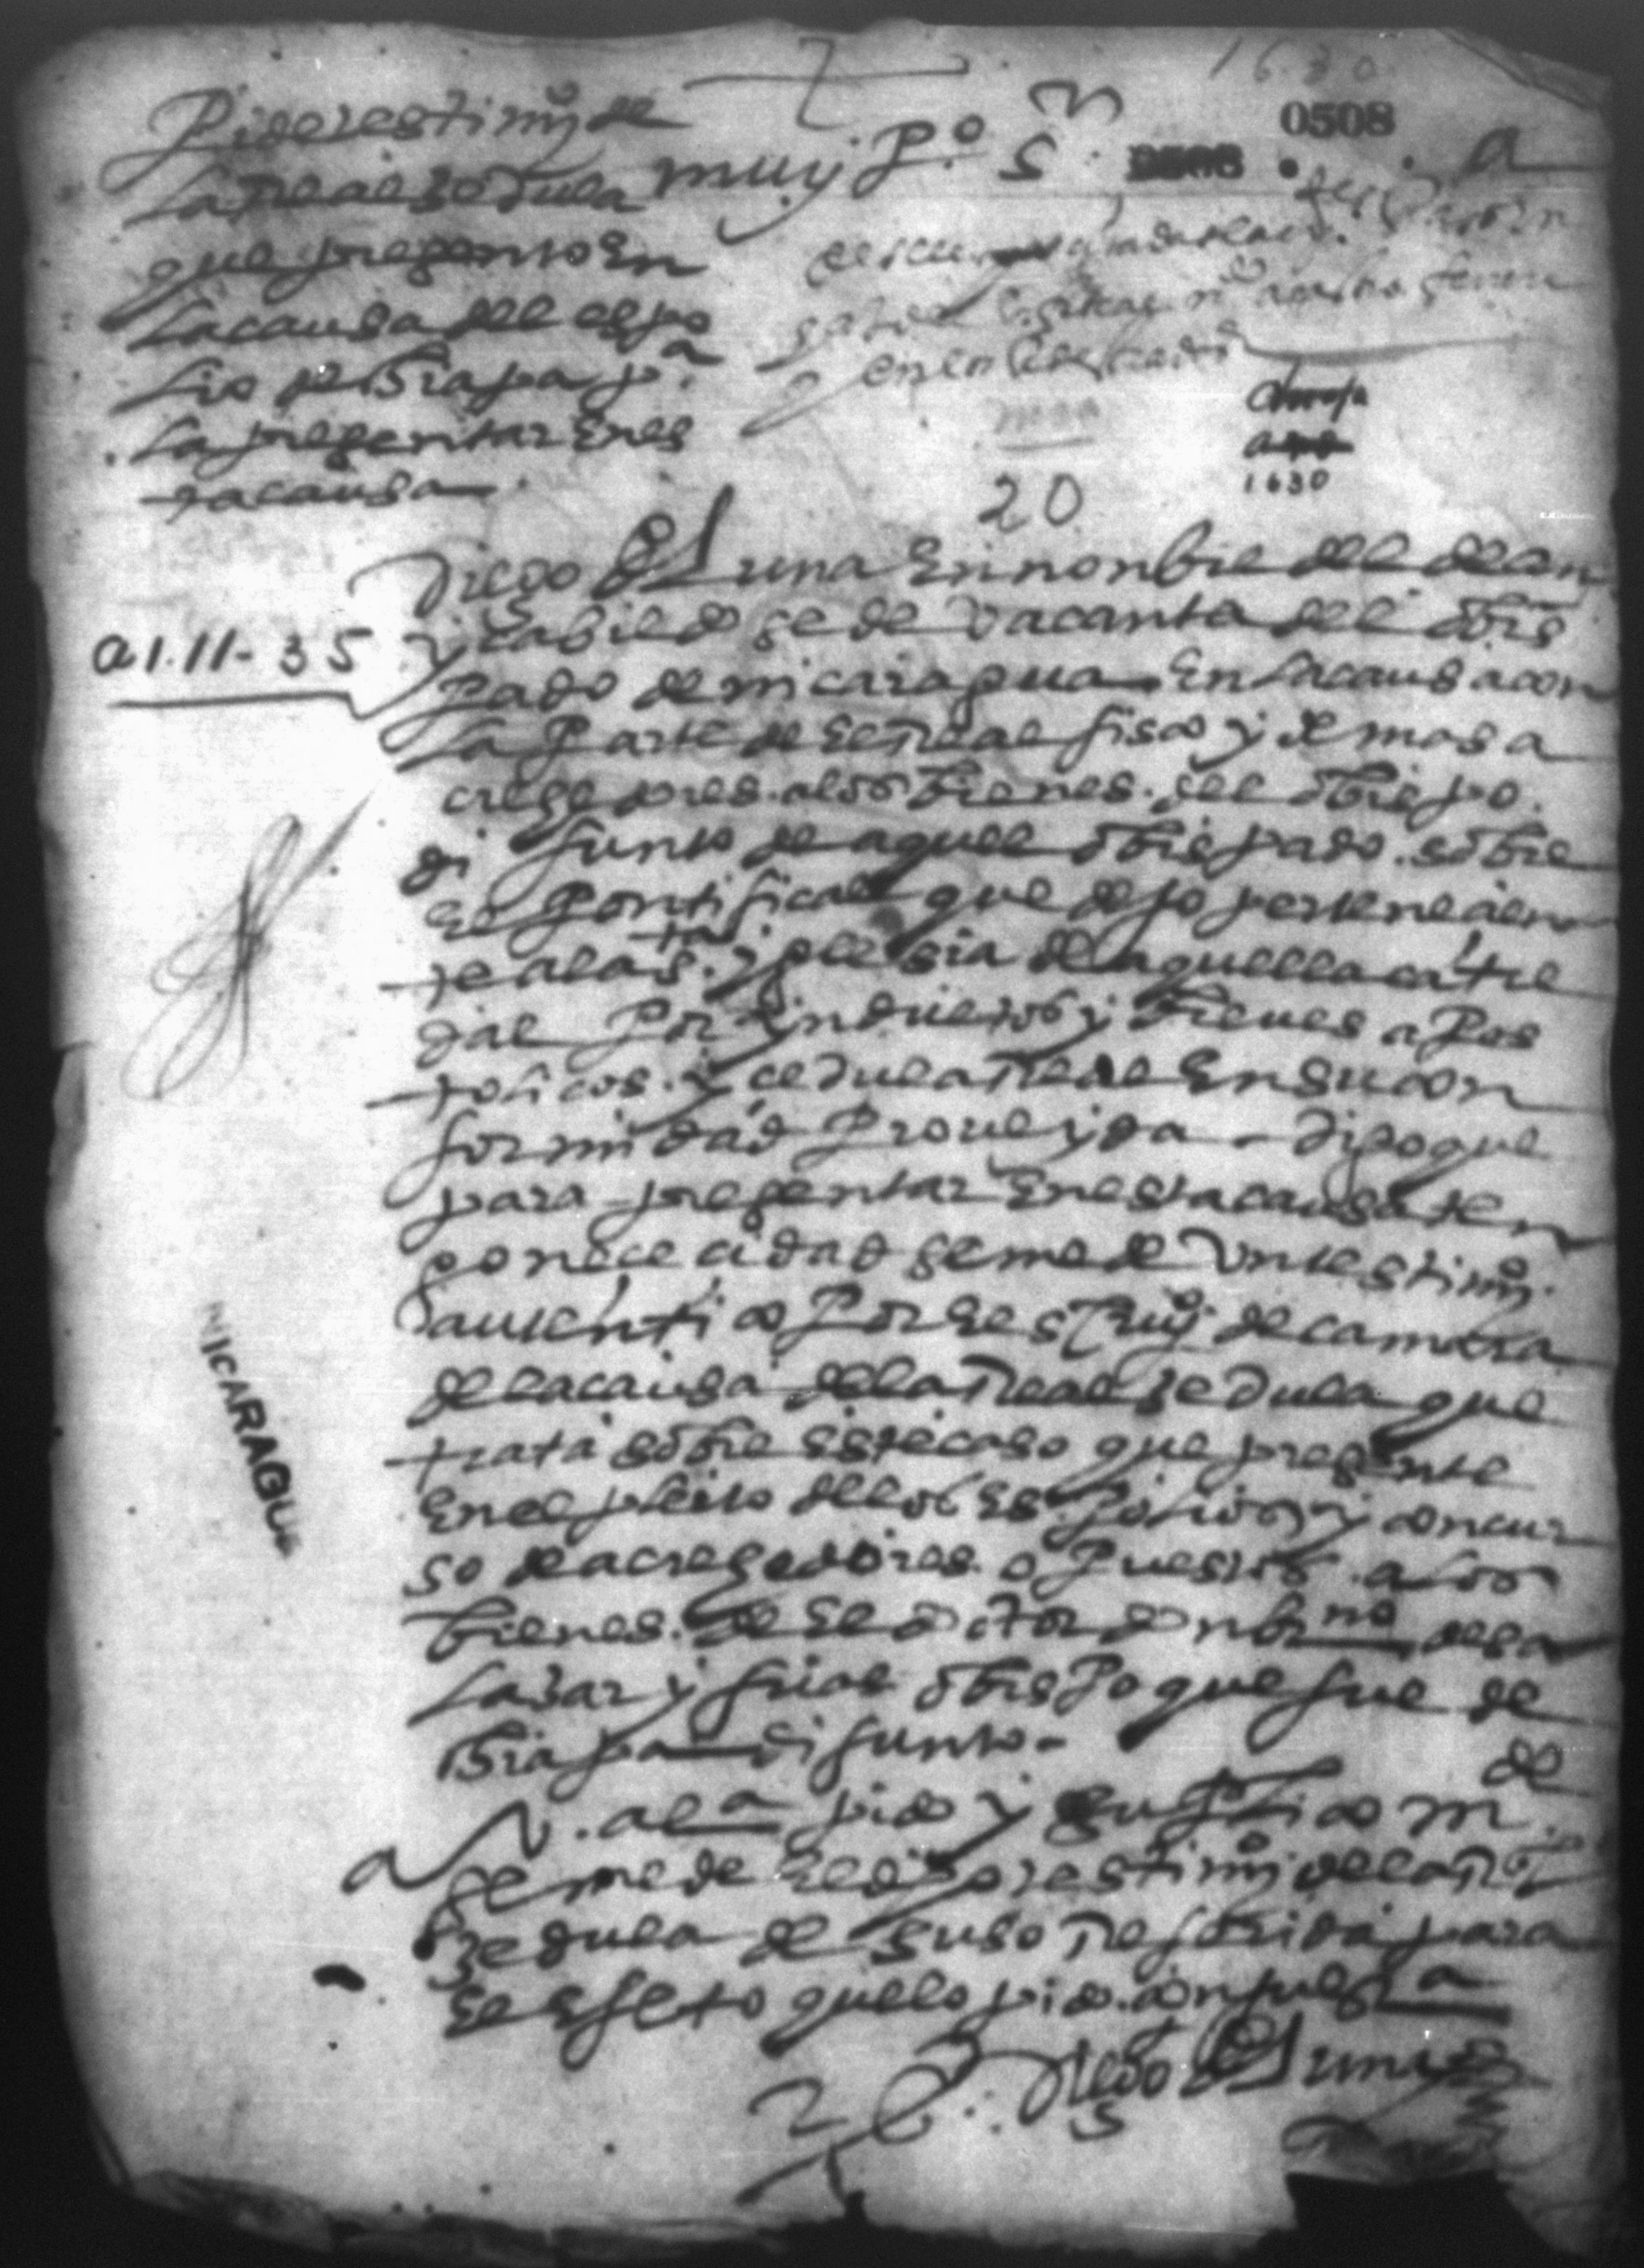 1630
0508
Pide testim.º de
la Real zedula
que presento en
la causa del espo
lio de Chiapa p.ª
la presentar en es
ta causa
muy P.º S.r
20
1630
A1.11-35
Diego de Luna en nonbre del dean
y cabildo sede vacante del obis
pado de nicaragua en la causa con
la parte de el real fisco y demas a
crehedores a los bienes del obispo
difunto de aquel obispado sobre
el Pontifical que dejo perteneçien
te a la s.ta yglesia de aquella cate
dral por yndultos y breues apos
tolicos y cedula real en su con
formidad proueyda - digo que
para presentar en esta causa ten
go neceçidad se me de un testim.º
autentico por el es.no de camara
de la causa de la real zedula que
trata sobre este caso que presente
en el pleito de los espolios y concur
so de acrehedores opuestos a los
bienes de el dotor don br.no de sa
lazar y frias obispo que fue de
chiapa difunto -
A V. al.ª pido y sup.co m.de
se me de el d.ho testim.º de la R.l
zedula de suso referida para
el efeto que lo pido con just.ª
Diego de Luna
NICARAGUA